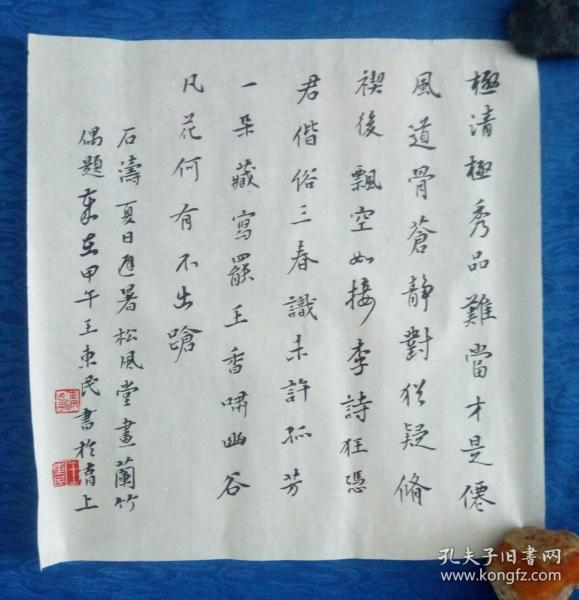 極清極秀品難當才是僊
風道骨蒼静對猶疑脩
禊後飄空如接李詩狂憑
君偕俗三春識未許孤芳
一朵藏寫罷王香嘯幽谷
凡花何有不出蹌
石濤夏日避暑松風堂畫蘭竹
偶題歲在甲午王東民書於青上
孔夫子旧書网
www.kongfz.com